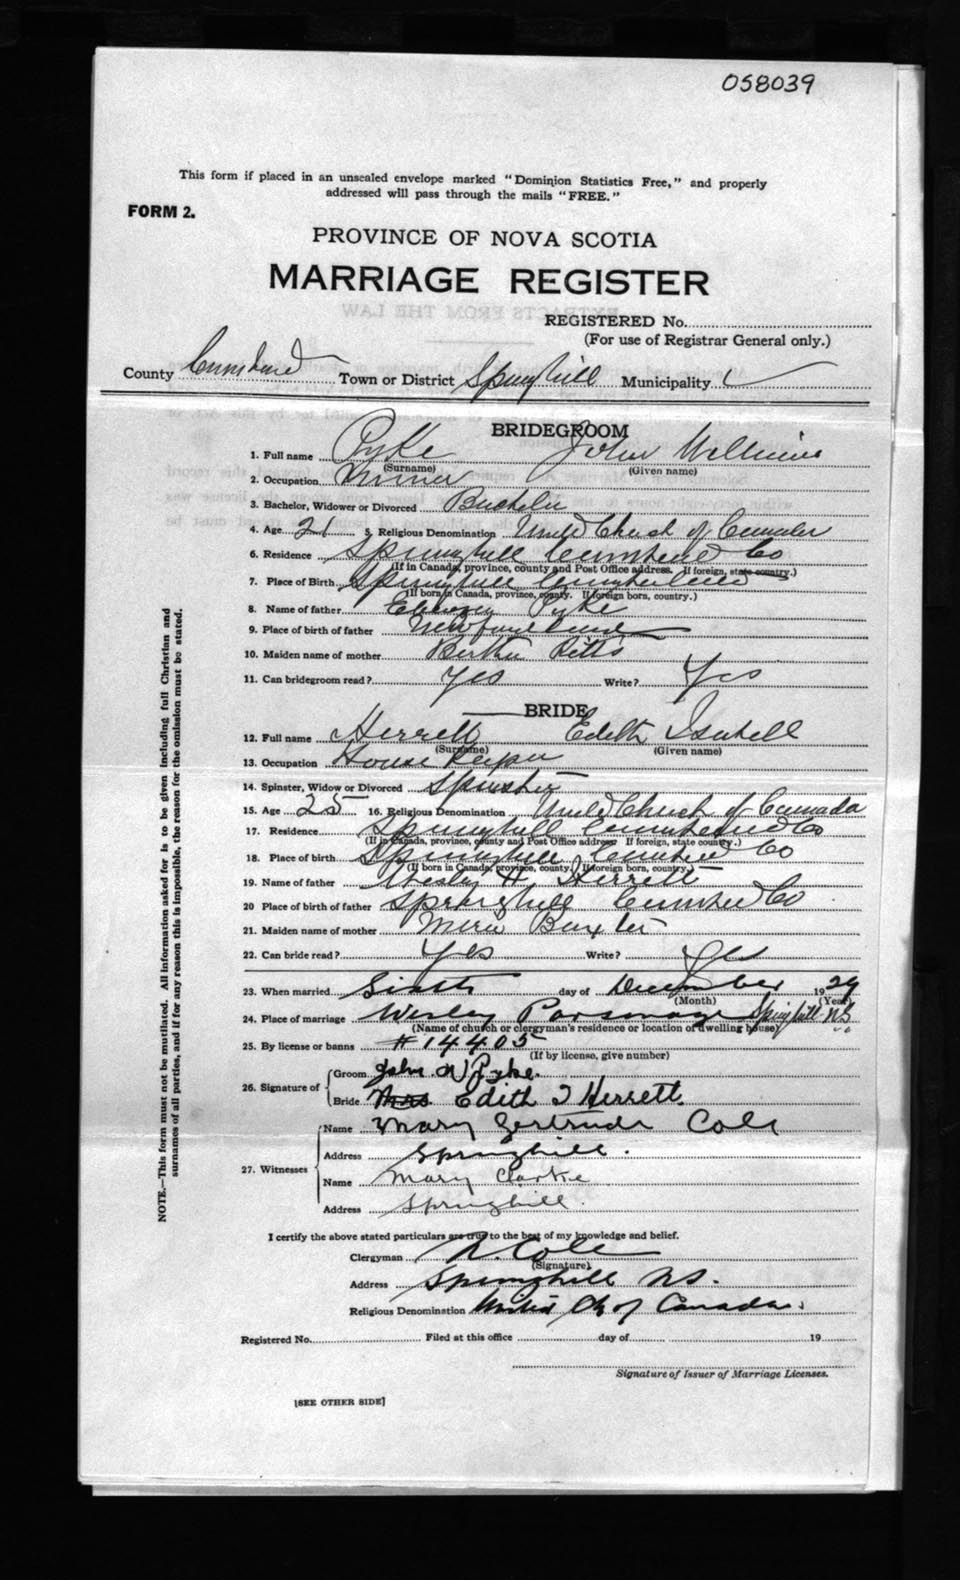 058039
This form if placed in an unsealed envelope marked "Dominion Statistics Free," and properly
addressed will pass through the mails "FREE."
FORM 2.
PROVINCE OF NOVA SCOTIA
MARRIAGE REGISTER
REGISTERED No.
(For use of Registrar General only.)
County Cumberland Town or District Springhill Municipality
BRIDEGROOM
1. Full name Pyke John Williams
(Surname) (Given name)
2. Occupation Miner
3. Bachelor, Widower or Divorced Bachelor
4. Age 21 5. Religious Denomination United Church of Canada
6. Residence Springhill Cumberland Co
(If in Canada, province, county and Post Office address. If foreign, state country.)
7. Place of Birth Springhill Cumberland
(If born in Canada, province, county. If foreign born, country.)
8. Name of father Pyke
9. Place of birth of father Newfoundland
10. Maiden name of mother Bertha Pitts
11. Can bridegroom read? Yes Write? Yes
BRIDE
12. Full name Herrett Edith Isabell
(Surname) (Given name)
13. Occupation House Keeper
14. Spinster, Widow or Divorced Spinster
15. Age 25 16. Religious Denomination United Church of Cannada
17. Residence Springhill Cumberland Co
(If in Canada, province, county and Post Office address. If foreign, state country.)
18. Place of birth Springhill Cumberland Co
(If born in Canada, province, county. If foreign born, country.)
19. Name of father Wesley H Herrett
20 Place of birth of father Springhill Cumberland Co
21. Maiden name of mother Baxter
22. Can bride read? Yes Write? Yes
23. When married Sixth day of December 1929
(Month) (Year)
24. Place of marriage Wesley Parsonage Springhill N.S.
(Name of church or clergyman's residence or location of dwelling house)
25. By license or banns #14405
(If by license, give number)
26. Signature of
Groom John W Pyke.
Bride Mrs Edith I Herrett.
27. Witnesses
Name Mary Gertrude Cole
Address Springhill.
Name Mary Clarke
Address Springhill.
I certify the above stated particulars are true to the best of my knowledge and belief.
Clergyman Cole
(Signature)
Address Springhill N.S.
Religious Denomination United Ch of Canada.
Registered No. Filed at this office day of 19
Signature of Issuer of Marriage Licenses.
[SEE OTHER SIDE]
NOTE.—This form must not be mutilated. All information asked for is to be given including full Christian and
surnames of all parties, and if for any reason this is impossible, the reason for the omission must be stated.